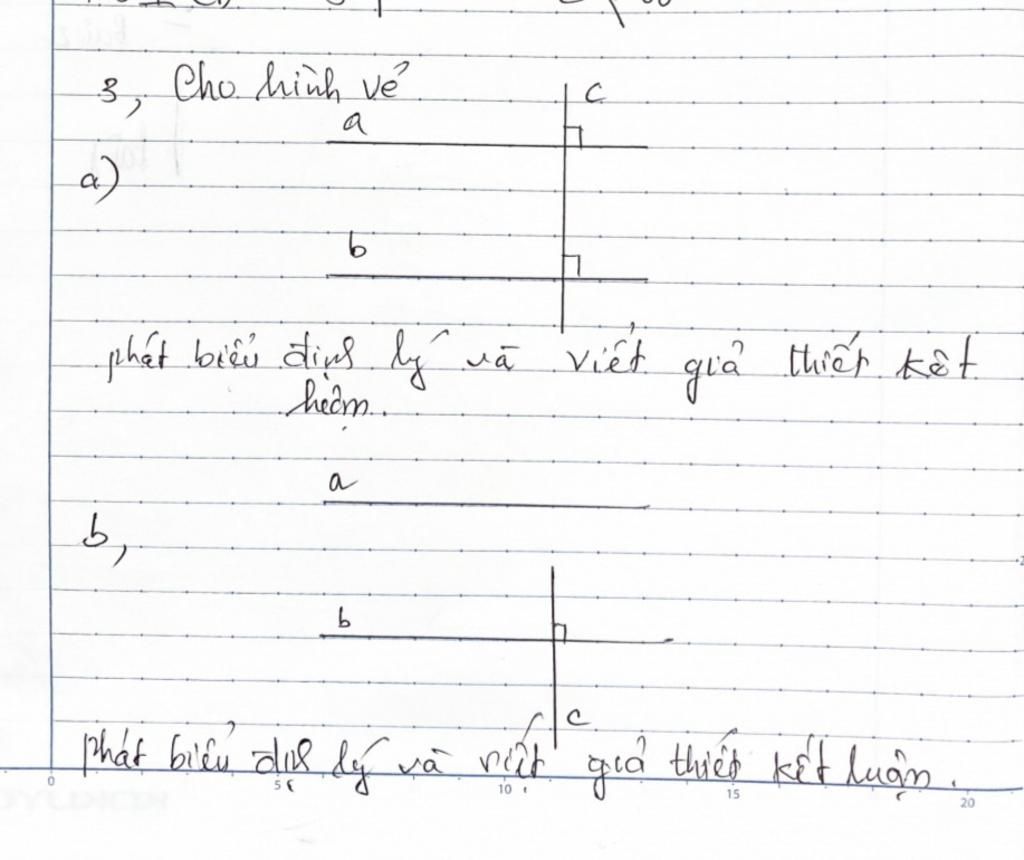 3, Cho hình vẽ
c
a
a)
b
phát biểu định lý và viết giả thiết kết
luận.
a
b,
b
c
phát biểu định lý và viết giả thiết kết luận.
0 5 10 15 20